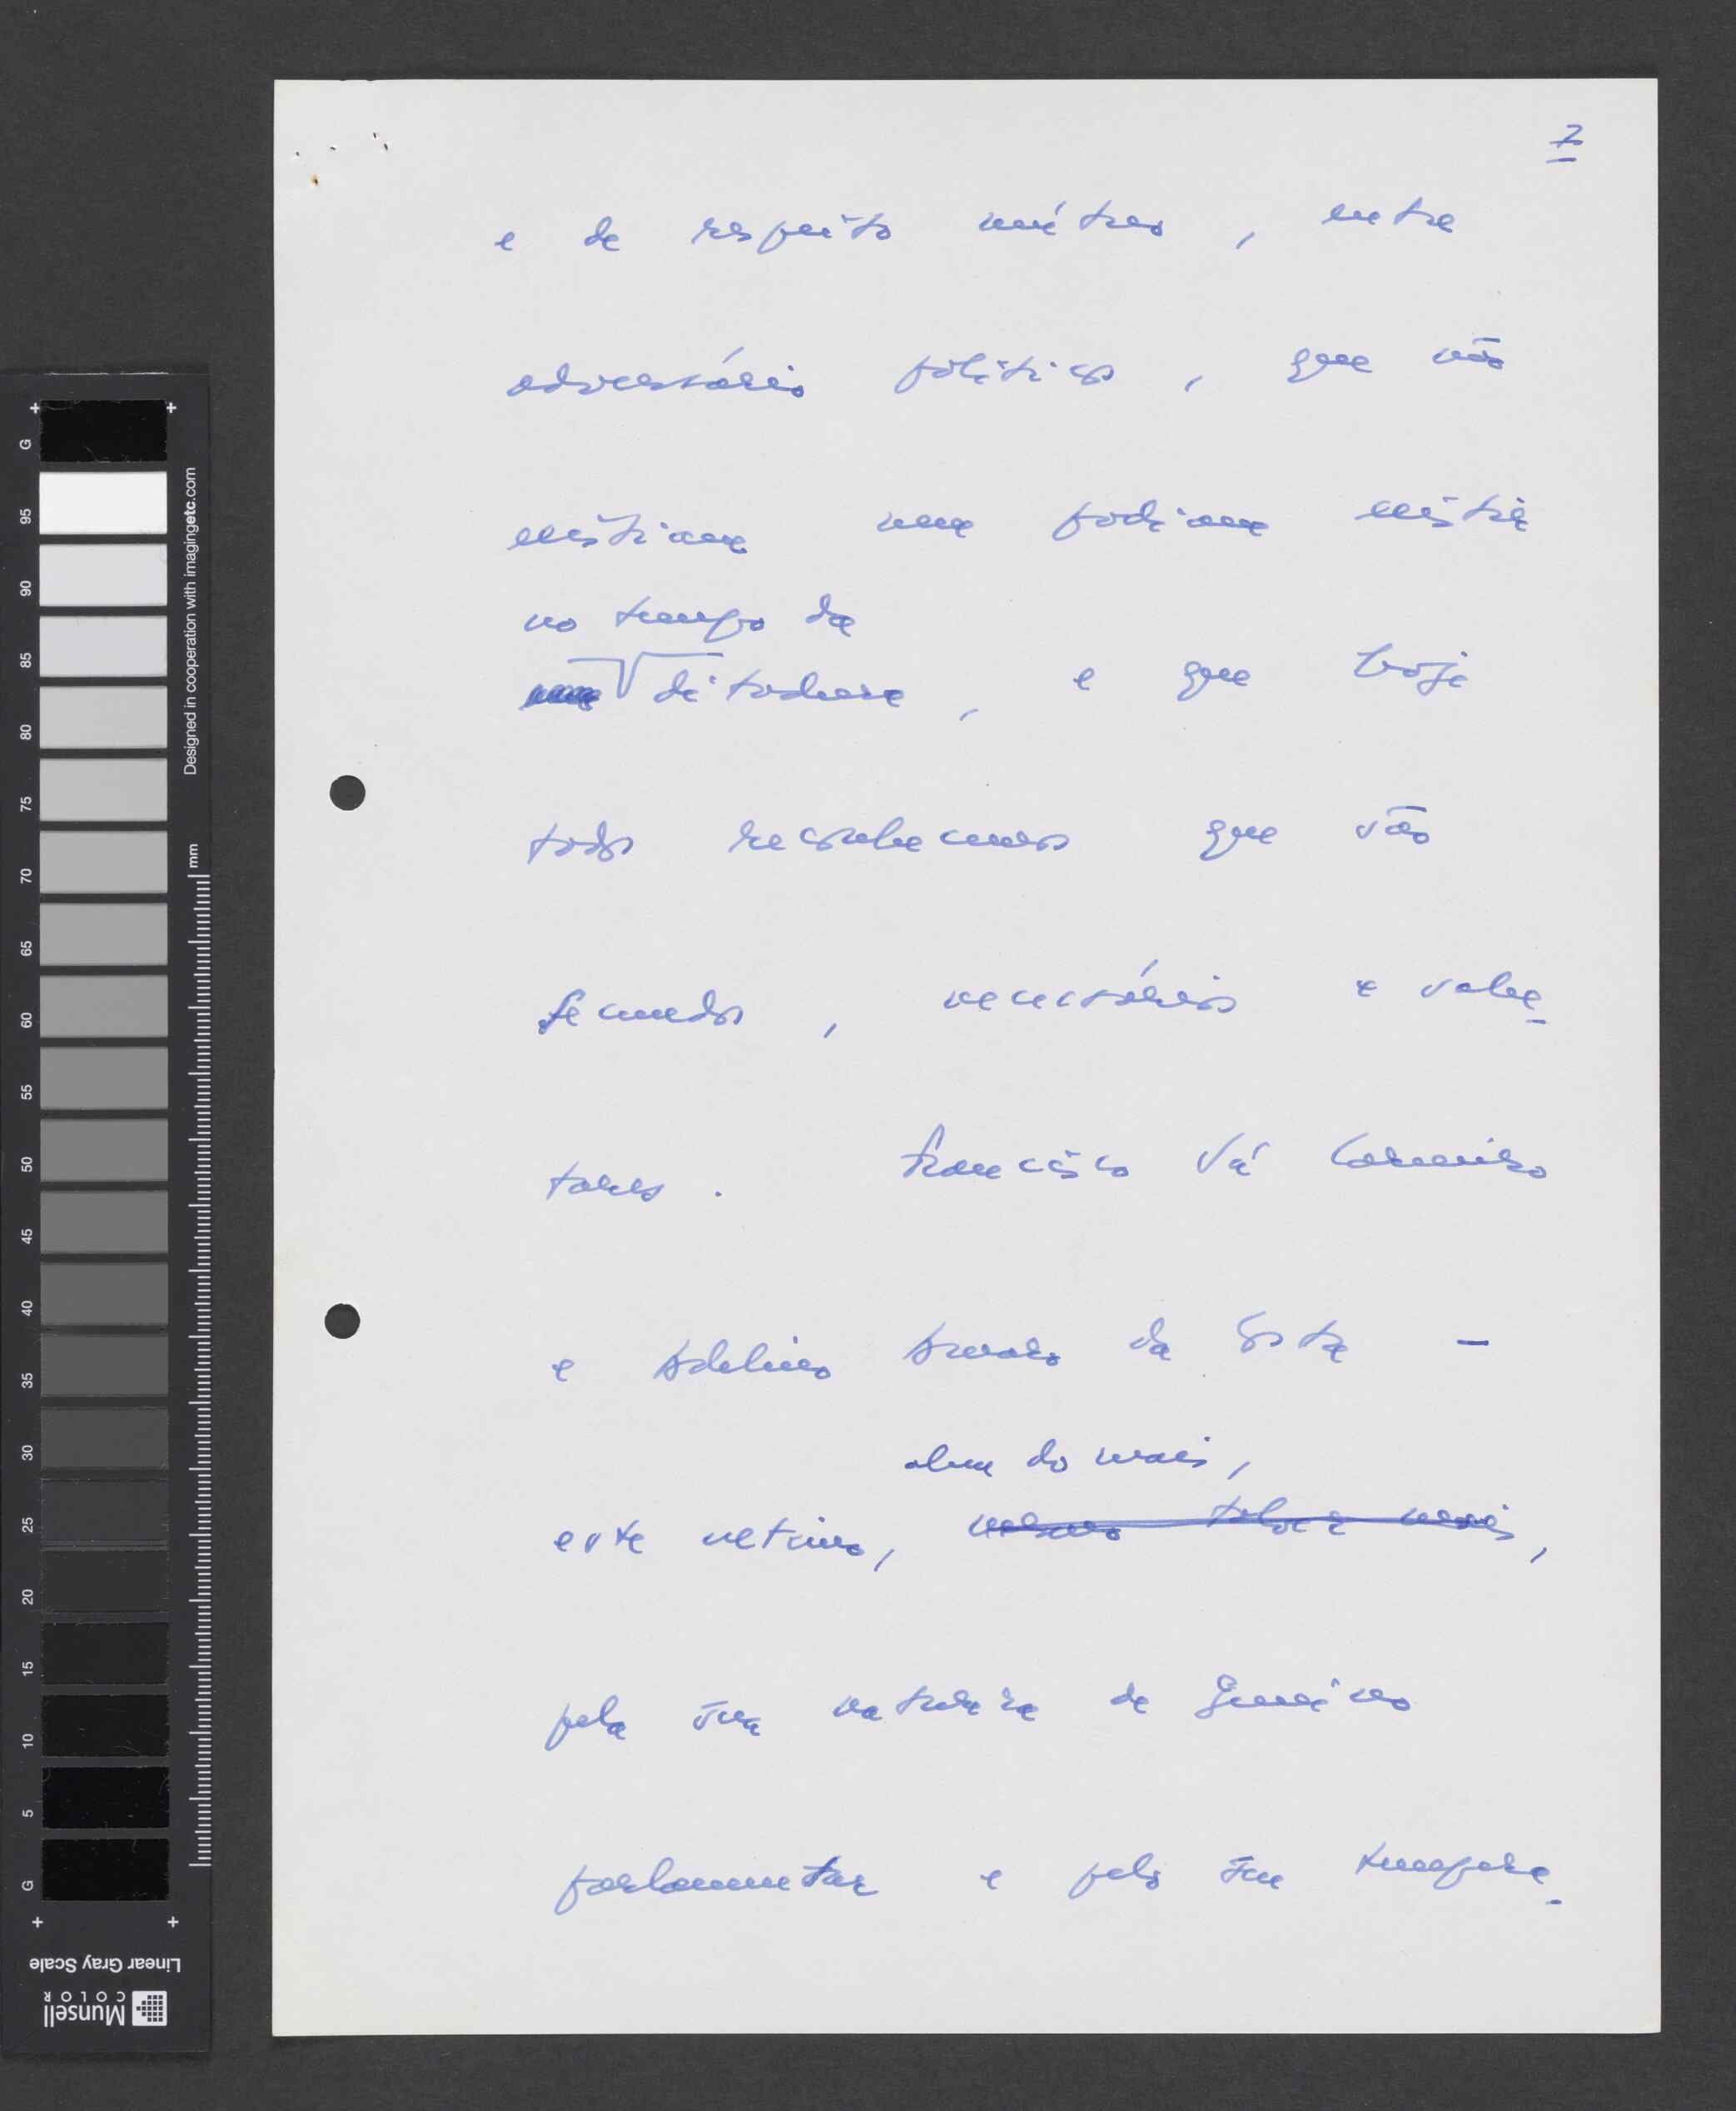 7
e de respeito mútuo, entre
adversários políticos, que não
existiam nem podiam existir
no tempo da
ditadura, e que hoje
todos reconhecemos que são
fecundos, necessários e salu-
tares. Francisco Sá Carneiro
e Adelino Amaro da Costa -
alem do mais,
este ultimo, mesmo talvez mais,
pela sua natureza de genuíno
parlamentar e pelo seu tempera-
G 95 90 85 80 75 70 65 60 55 50 45 40 35 30 25 20 15 10 5 G
mm
Designed in cooperation with imagingetc.com
Linear Gray Scale
Munsell
COLOR